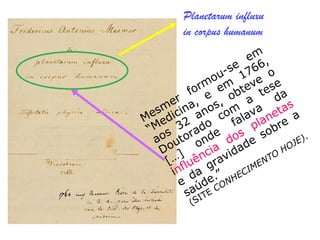 Fridericus Antonius Mesmer
de
planetarum influxu
in corpus humanum
Planetarum influxu
in corpus humanum
Mesmer formou-se em
“Medicina, e em 1766,
aos 32 anos, obteve o
Doutorado com a tese
[…] onde falava da
influência dos planetas
e da gravidade sobre a
saúde.”
(SITE CONHECIMENTO HOJE).